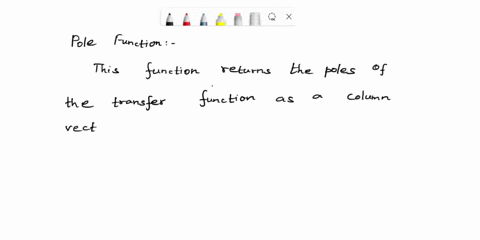 Pole Function:-
This function returns the poles of
the transfer function as a column
vect